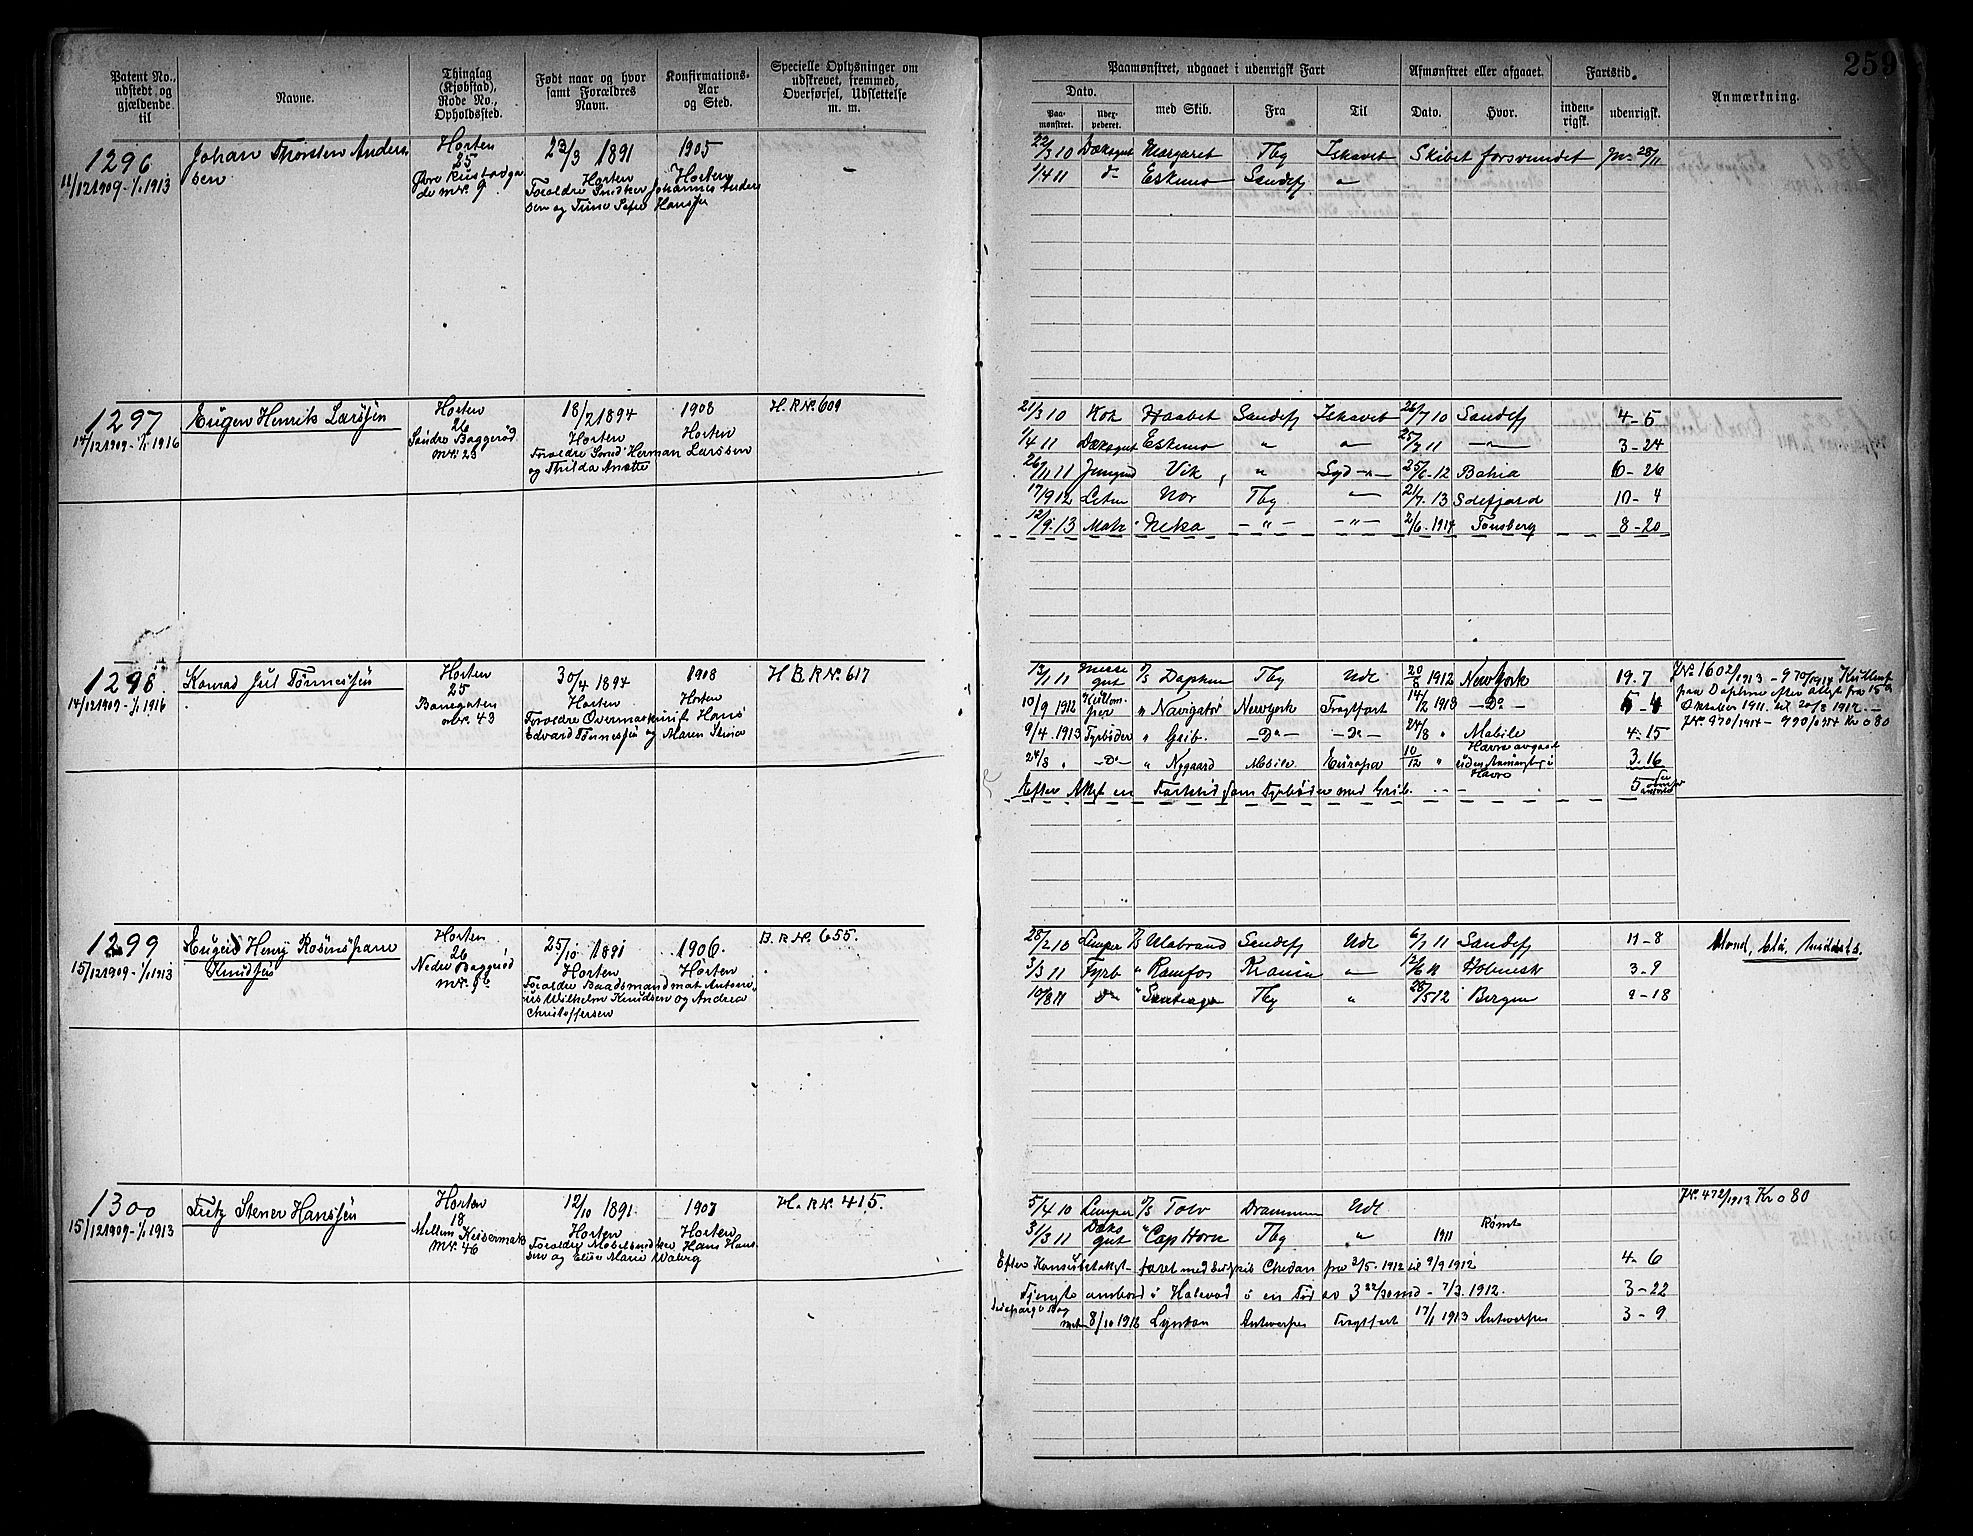 259
Patent No., udstedt og gjældende til
Navne.
Thinglag (Kjøbstad), Rode No., Opholdssted.
Født naar og hvor samt Forældres Navn.
Konfirmations-Aar og Sted.
Specielle Oplysninger om udskrevet, fremmed, Overførsel, Udslettelse m. m.
Paamønstret, udgaaet i udenrigsk Fart
Afmønstret eller afgaaet.
Fartstid.
Anmærkning.
Dato.
Paa-mønstret.
Uder-pederet.
med Skib.
Fra
Til
Dato.
Hvor.
inden-rigsk.
udenrigsk.
1296
11/12 1909 - 1/1 1913
Johan Thorsten Ander
sen
Horten
25
nr. 9
23/3 1891
Horten
Forældre Snedker Johannes Ander
sen og Trine Hansen
1905
Horten
22/3 10 Dæksgut Margaret Tbg Ishavet Skibet forsvundet
1/4 11 do Eskimo Sandefj "
1297
14/12 1909 - 1/1 1916
Eugen Henrik Larssen
Horten
26
Søndre Baggerød
nr. 23
18/2 1894
Horten
Forældre Smed Herman Larssen
og Thilda Anette
1908
Horten
H. R. No. 609
21/3 10 Kok Haabet Sandefj Ishavet 26/7 10 Sandefj 4-5
1/4 11 Dæksgut Eskimo " " 25/7 11 — " — 3-24
26/11 11 Jungmd Vik " Syd - " - 25/6 - 12 Bahia 6-26
17/9 12 Letm Nor Tbg — " — 21/7 - 13 Sdefjord 10-4
12/9. 13 Matr Neka — " — — " — 2/6 - 1914 Tønsberg 8-20
1298
14/12 1909 - 1/1 1916
Konrad Juel Tønnessen
Horten
25
Banegaten
nr. 43
30/4 1894
Horten
Forældre Overmaskinist Hans
Edvard Tønnessen og Maren Stina
1908
Horten
H B. R No. 617
Messegut D/S Daphne Tbg Udl 20/8 1912 New York 19.7
10/9 1912 Kullemper " Navigatør New York Fragtfart 14/2 1913 — Do — 5-4
9/4. 1913 Fyrbøder " Grib. — Do — — Do — 24/8 " Mobile 4-15
24/8 " — Do — " Nygaard Mobile Europa 10/12 " Havre avgaat
uden Anmærkg i Havre 3.16
Efter Attest en Fartstid som Fyrbøder med Grib.
J.No. 1602/1913 - 970/1914
paa Daphne efter attest fra 15de
Oktober 1911 til 20/8 1912. —
J.No. 970/1914 — Kr 0 80
1299
15/12 1909 - 1/1 1913
Henry
Knudsen
Horten
26
Nedre Baggerød
nr. 9
25/10 1891
Horten
Forældre Baadsmandmat Antoni
us Wilhelm Knudsen og Andrea
Christoffersen
1906.
Horten
B. R No. 655.
28/2 10 Lemper D/S Ulabrand Sandefj Udl 6/1 11 Sandefj 11-8
3/3 11 Fyrb " Ramfos Krania — " — 12/6 11 Holmestr 3-9
10/8 11 Do " Tbg " 28/5 12 Bergen 9-18
Blond, blå, Middels.
1300
15/12 1909 - 1/1 1913
Fritz Stener Hanssen
Horten
18
Mellem
nr. 46
12/10 1891
Horten
Forældre Møbelsnedker Hans Hans
sen og Elise Marie Walvig
1907
Horten
H. R No. 415.
5/4 10 Lemper D/S Tolv Drammen Udl
31/3 11 Dæksgut " Cap Horn Tbg " 1911 Rømt
Efter Konsulatattest faret med Chedan fra 3/5. 1912 til 9/9 1912 4-6
Tjengte ombord i Halevad i en Tid av 3 22/30 md — 7/3. 1912. 3-22
8/10 1912 Lynton Antwerpen Fragtfart 17/1 1913 Antwerpen 3-9
J.No. 472/1913 Kr 0 80